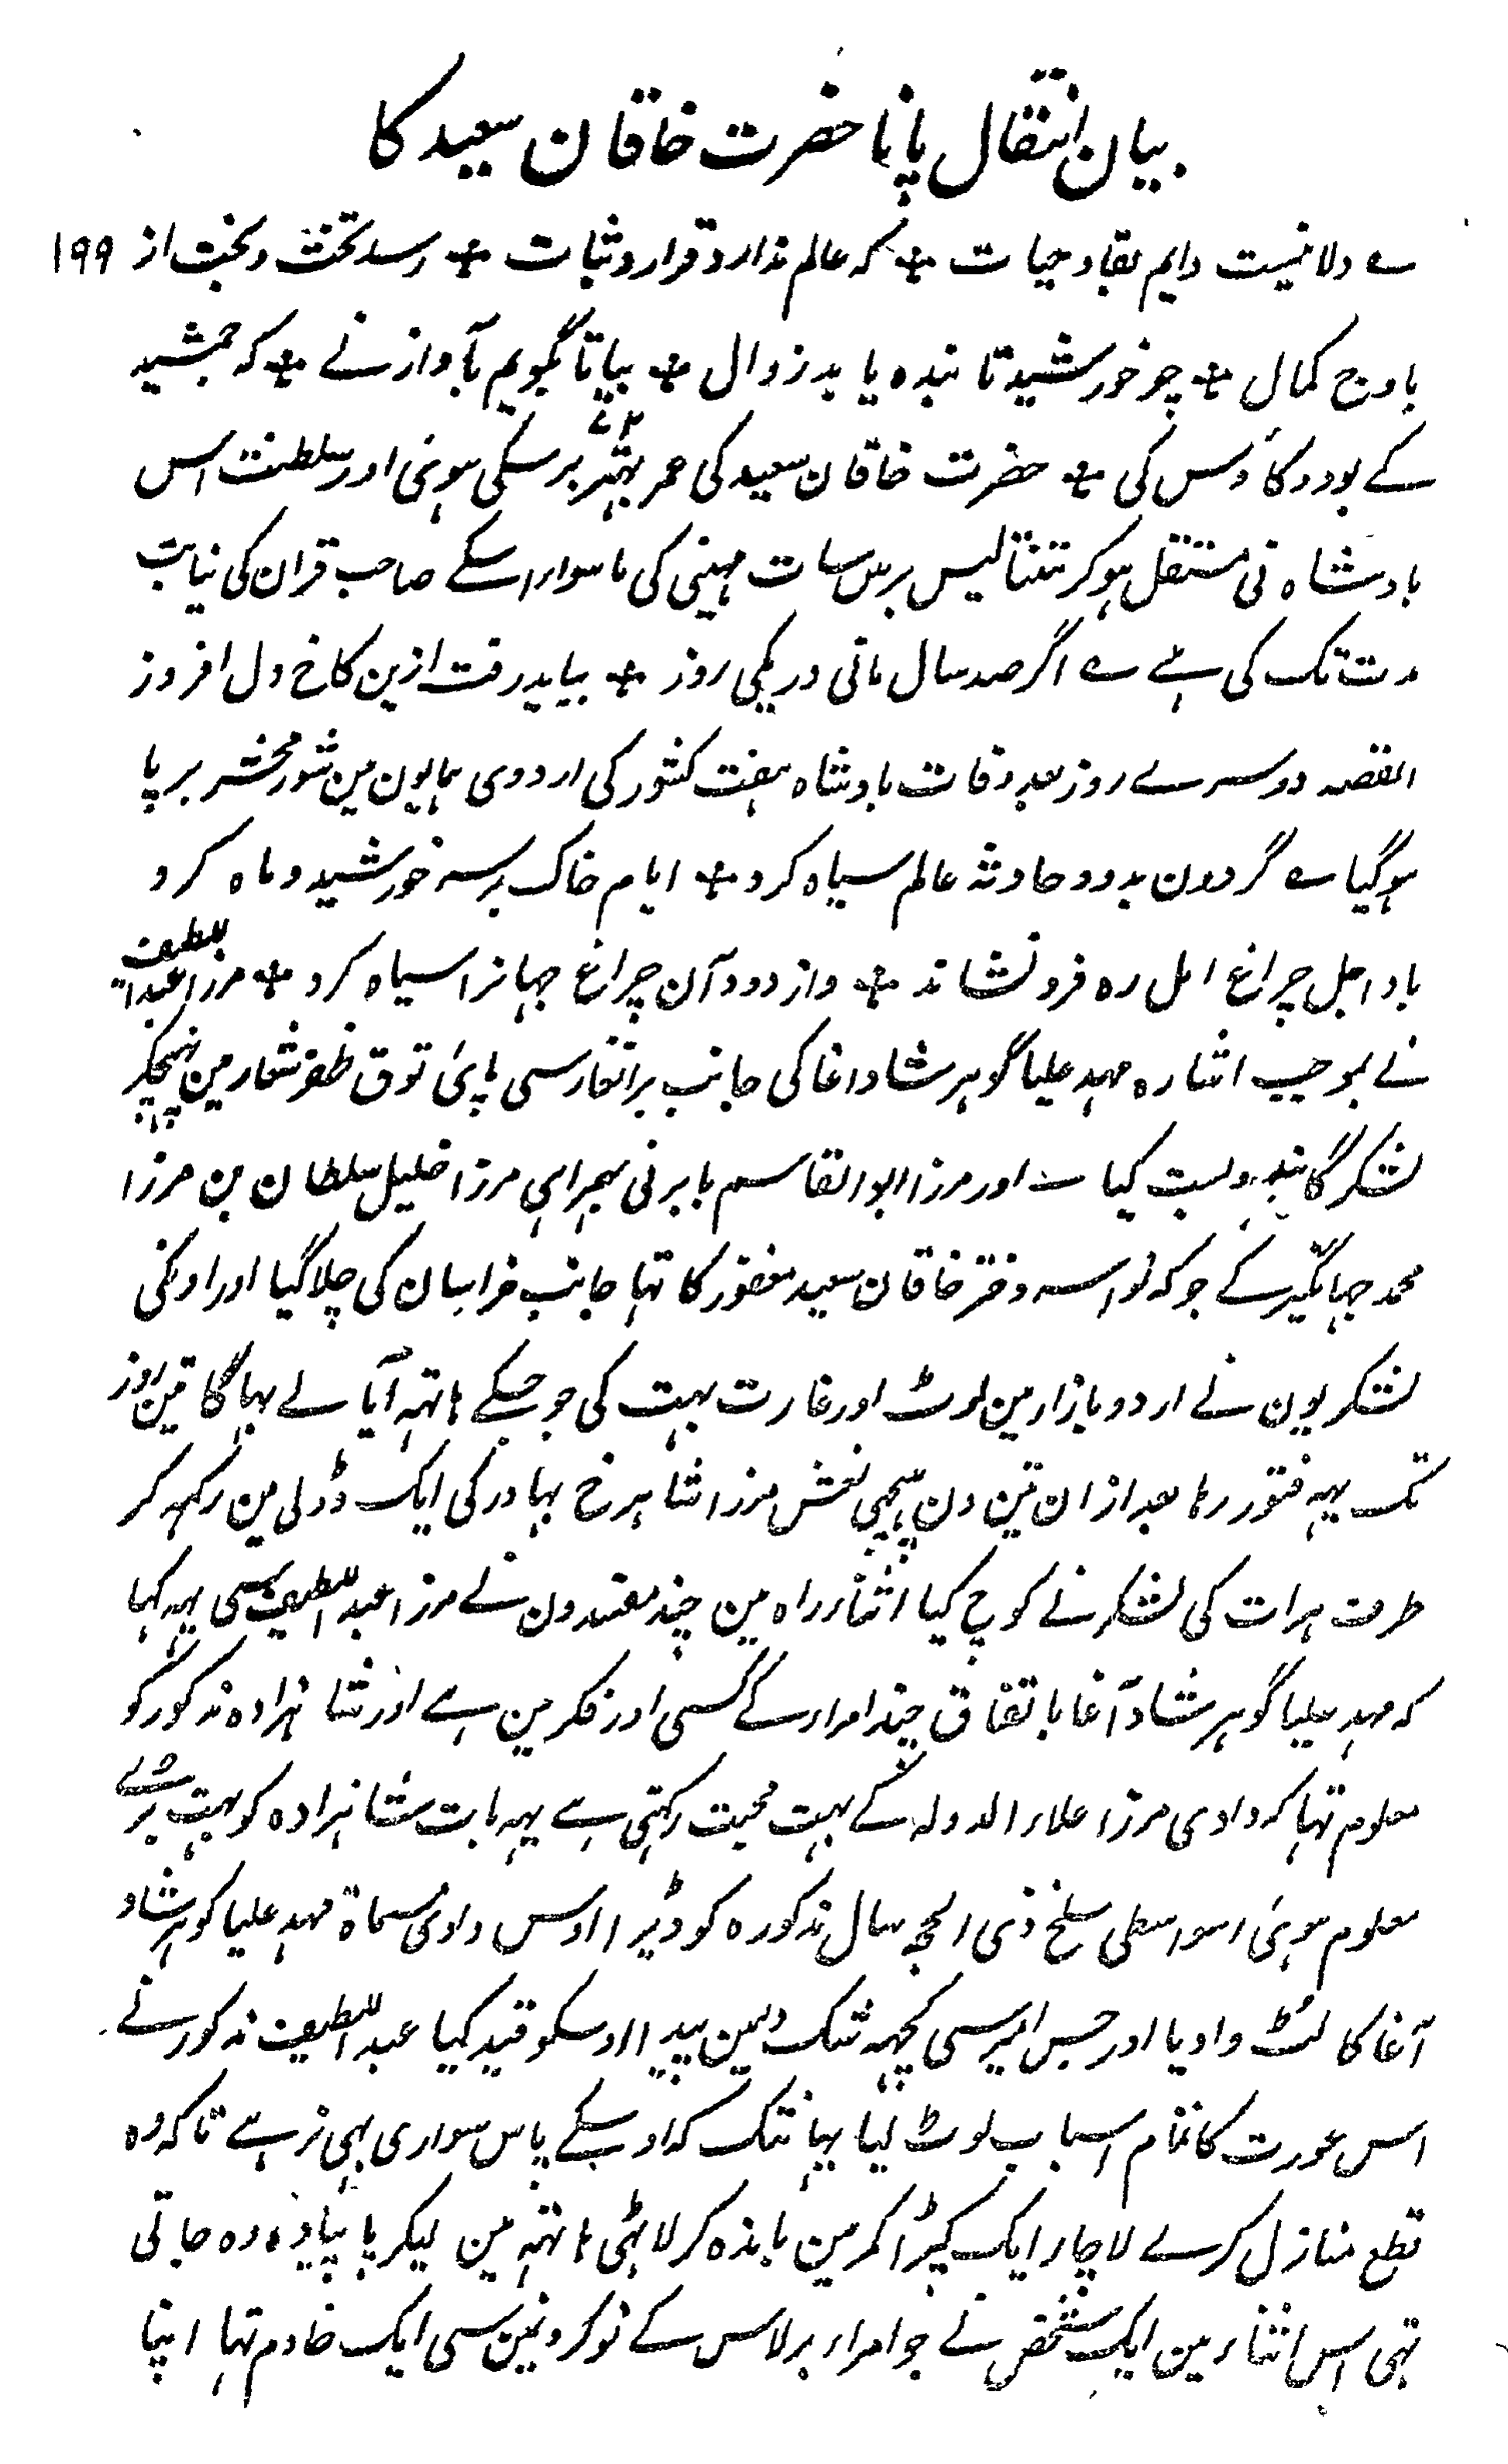 بیان انتقال پانا حضرت خاقان سعید کا
؎ دلا نیست دایم بقاو حیات ؞ کہ عالم ندارد قرار و ثبات ؞ رسد تخت و بخت از ۱۹۹
باوج کمال ؞ چو خورشید تابندہ یابد زوال ؞ بیا تا بگویم بآواز نے ؞ کہ جمشید
کے بود و کاؤس کی ؞ حضرت خاقان سعید کی عمر بہتر ۷۲ برسکی ہوئی اور سلطنت اس
بادشاہ نی مستقل ہو کر تنتالیس برس سات مہینی کی ماسوا اسکے صاحب قران کی نیابت
مدت تک کی ہے ؎ اگر صد سال مانی در یکی روز ؞ بباید رفت ازین کاخ دل افروز
القصہ دوسرے روز بعد وفات بادشاہ ہفت کشور کی اردوی ہمایون مین شور محشر برپا
ہوگیا ؎ گردون بدود حادثہ عالم سیاہ کرد ؞ ایام خاک بر سر خورشید و ماہ کرد
باد اجل چراغ امل رہ فرو نشاند ؞ واز دود آن چراغ جہانرا سیاہ کرد ؞ مرزا عبداللطیف
نے بموجب اشارہ مہد علیا گوہر شاد اغا کی جانب برانغار سی پائ توق ظفر شعار مین پہنچکر
لشکر کا بندوبست کیا اور مرزا ابو القاسم بابر نی بہمراہی مرزا خلیل سلطان بن مرزا
محمد جہانگیر کے جو کہ نواسہ دختر خاقان سعید مغفور کا تہا جانب خراسان کی چلا گیا اور اونکی
لشکریون نے اردو بازار مین لوٹ اور غارت بہت کی جو جسکے ہاتہہ آیا لے بہاگا تین روز
تک یہہ فتور رہا بعد ازان تین دن پیچھی نعش مرزا شاہرخ بہادر کی ایک ڈولی مین رکہہ کر
طرف ہرات کی لشکر نے کوچ کیا اثناء راہ مین چند مفتدون نے مرزا عبداللطیف سی یہہ کہا
کہ مہد علیا گوہر شاد آغا باتفاق چند امراء کے کسی اور فکر مین ہے اور شاہزادہ مذکور کو
معلوم تہا کہ دادی مرزا علاء الدولہ کے بہت محبت رکہتی ہے یہہ بات شاہزادہ کو بہت بڑے
معلوم ہوئی اسواسطی سلخ ذی الحجہ سال مذکورہ کو ڈیرا اوس دادی مسماۃ مہد علیا گوہرشاد
آغا کا لٹوا دیا اور جس امیر سی کچہہ شک دلمین پیدا اوسکو قید کیا عبداللطیف مذکور نے
اس عورت کا تمام اسباب لوٹ لیا یہانتک کہ اوسکے پاس سواری بہی نرہے تاکہ وہ
قطع منازل کرے لاچار ایک کپڑا کمر مین باندہ کر لاٹہی ہاتہہ مین لیکر پا پیادہ وہ جاتی
تہی اس اثناء مین ایک شخص نے جو امراء برلاس کے نوکرونمین سی ایک خادم تہا اپنا